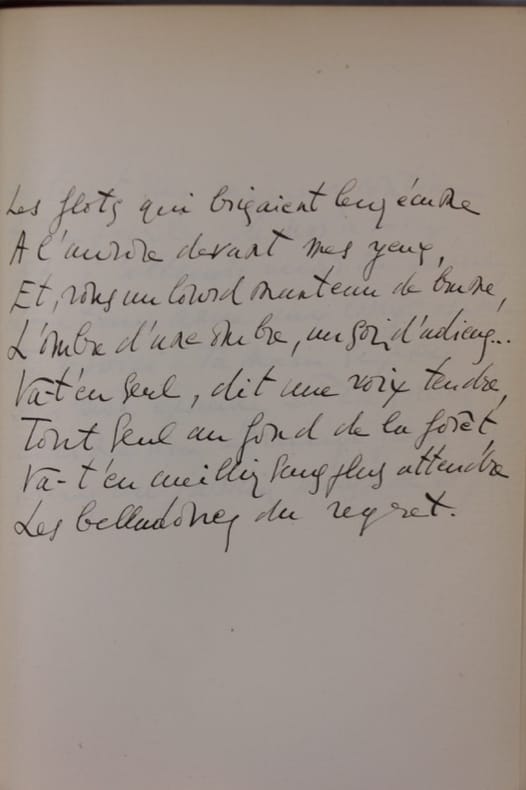 Les flots qui brisaient leur écume
A l'aurore devant mes yeux,
Et, sous un lourd manteau de brume,
L'ombre d'une ombre, un soir d'adieux...
Va-t'en seul, dit une voix tendre,
Tout seul au fond de la forêt,
Va-t'en cueillir sans plus attendre
Les belladones du regret.